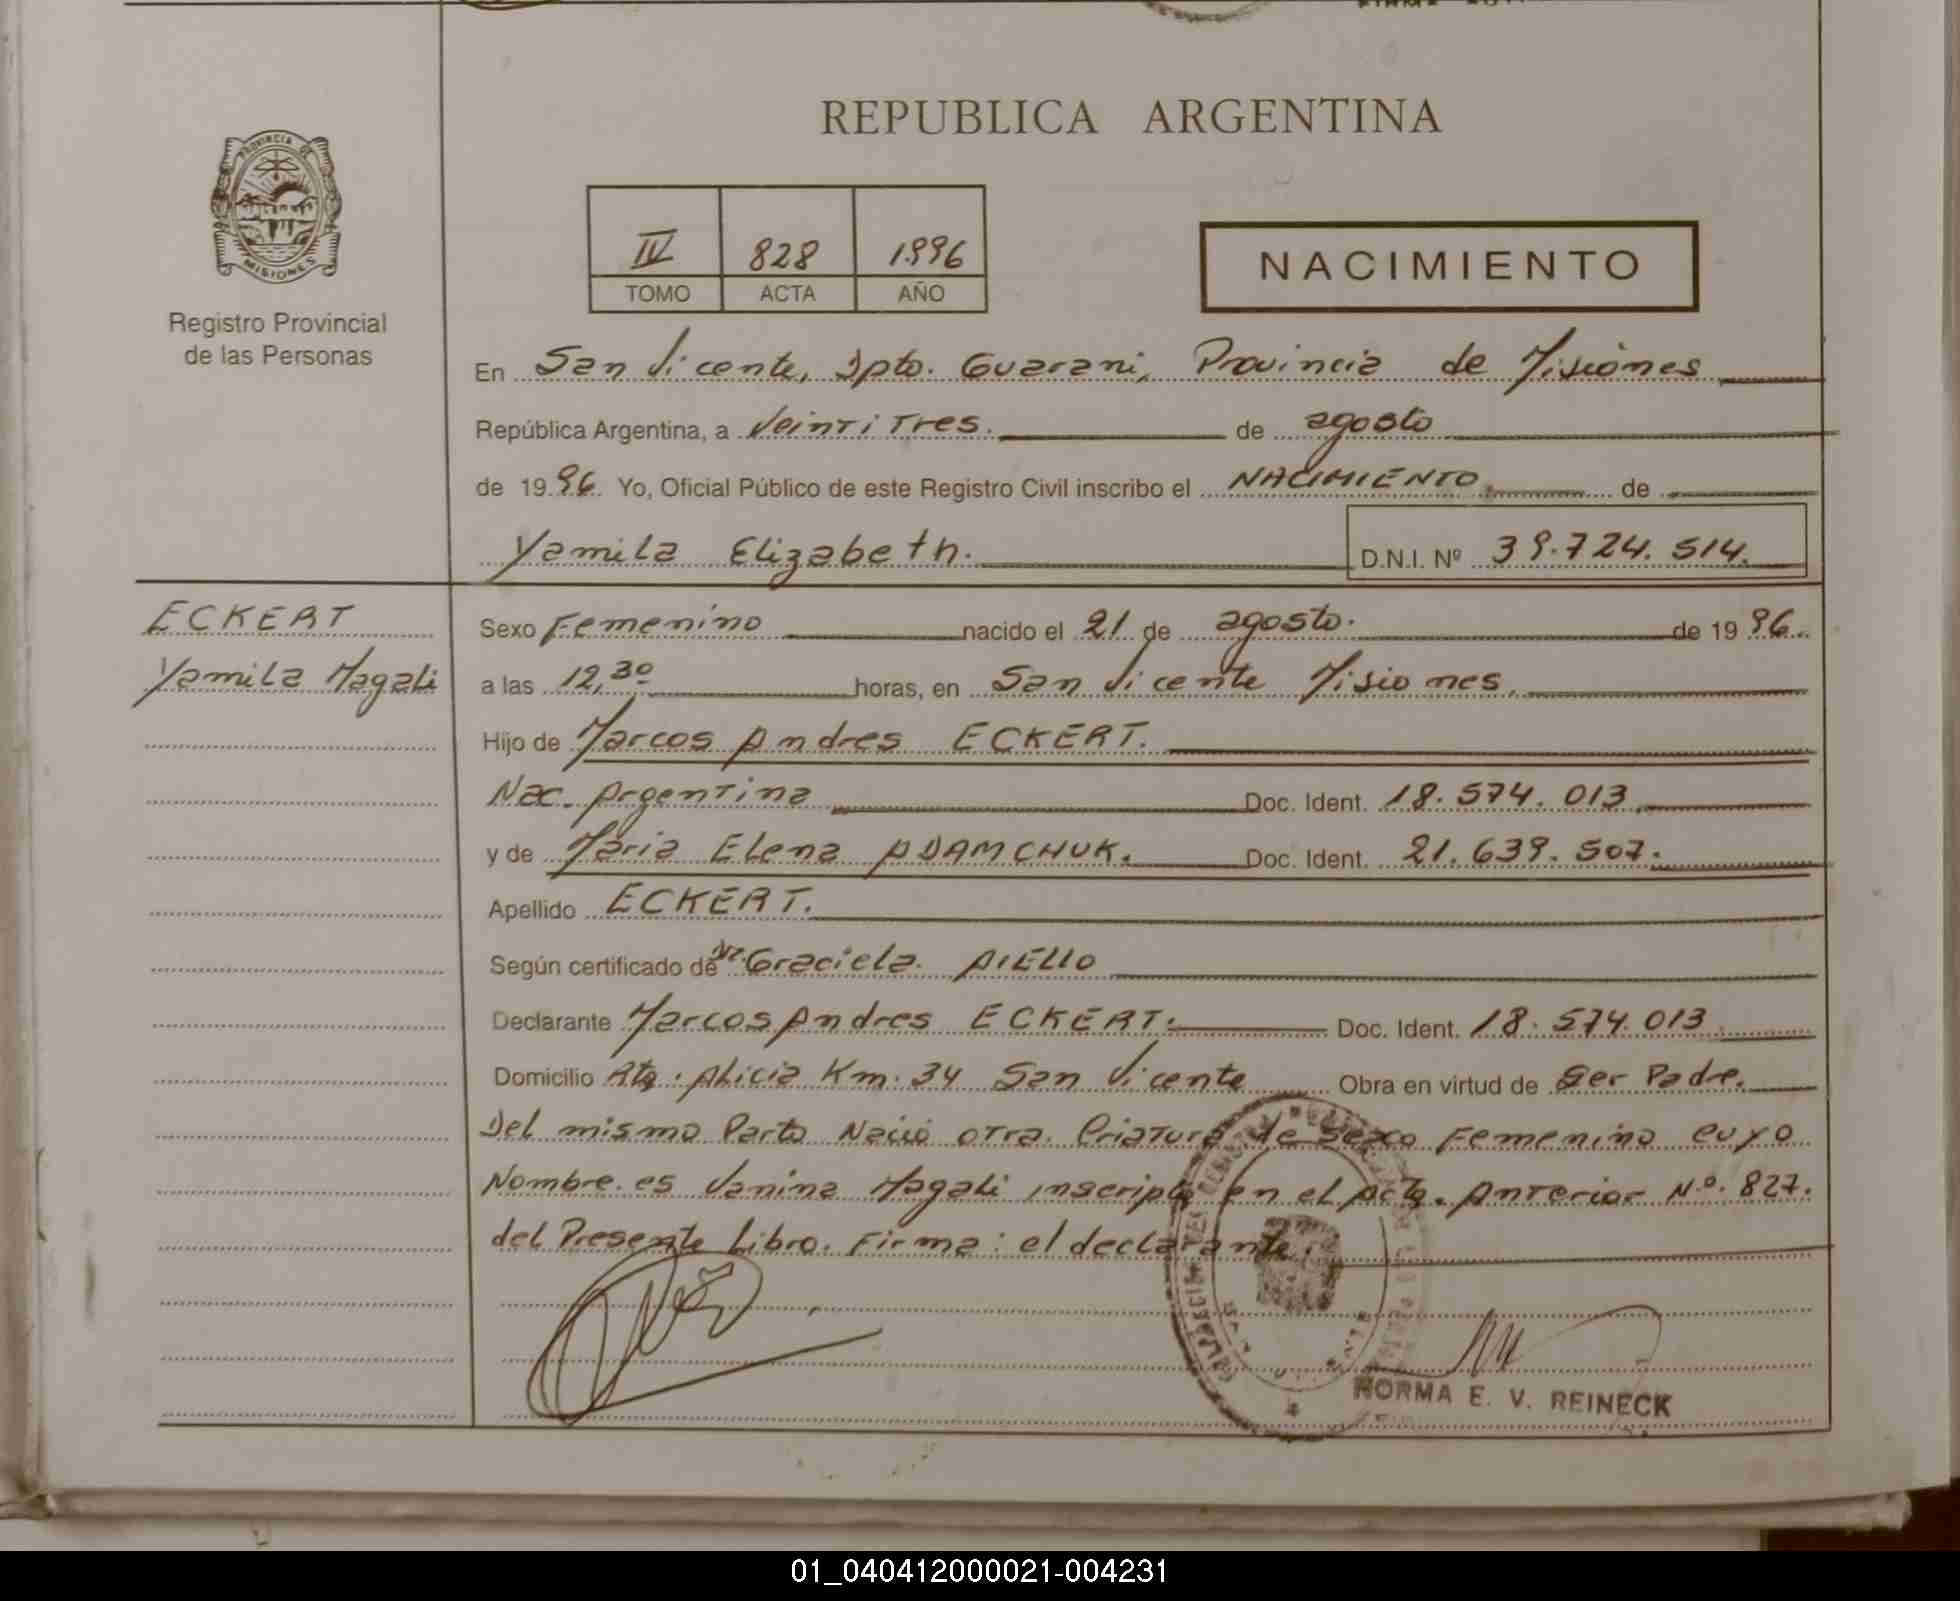 REPUBLICA ARGENTINA
PROVINCIA DE
MISIONES
IV 828 1996
TOMO ACTA AÑO
NACIMIENTO
Registro Provincial
de las Personas
En San Vicente, Dpto. Guarani, Provincia de Misiones
República Argentina, a Veintitres. de agosto
de 1996 Yo, Oficial Público de este Registro Civil inscribo el NACIMIENTO de
Yamila Elizabeth. D.N.I. Nº 39.724.514.
ECKERT
Yamila Magali
Sexo Femenino nacido el 21 de agosto. de 1996
a las 12,30 horas, en San Vicente Misiones,
Hijo de Marcos Andres ECKERT.
Nac. Argentina Doc. Ident. 18.574.013
y de Maria Elena ADAMCHUK. Doc. Ident. 21.639.507.
Apellido ECKERT.
Según certificado de Graciela AIELLO
Declarante Marcos Andres ECKERT. Doc. Ident. 18.574.013
Domicilio Rta. Alicia Km. 34 San Vicente Obra en virtud de Ser Padre.
Del mismo Parto Nació otra Criatura de Sexo Femenino cuyo
Nombre es Vanina Magali inscripta en el acta Anterior Nº. 827.
del Presente Libro. Firma: el declarante.
NORMA E. V. REINECK
01_040412000021-004231